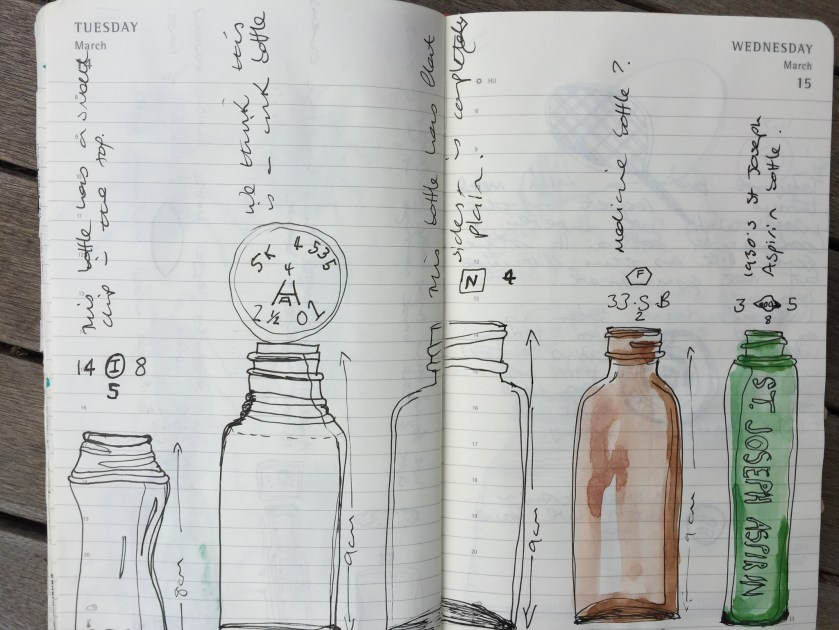 TUESDAY
March
This bottle has a
chip in the top.
14 I 8
5
8cm
we think this
is an ink bottle
5K 4 4535
A
2 ½ 01
9cm
This bottle has flat
sides & is completely
plain.
N 4
9cm
WEDNESDAY
March
15
Medicine bottle?
F
33.S B
2
9cm
1930's St Joseph
Aspirin bottle.
3 5
8
ST. JOSEPH ASPIRIN